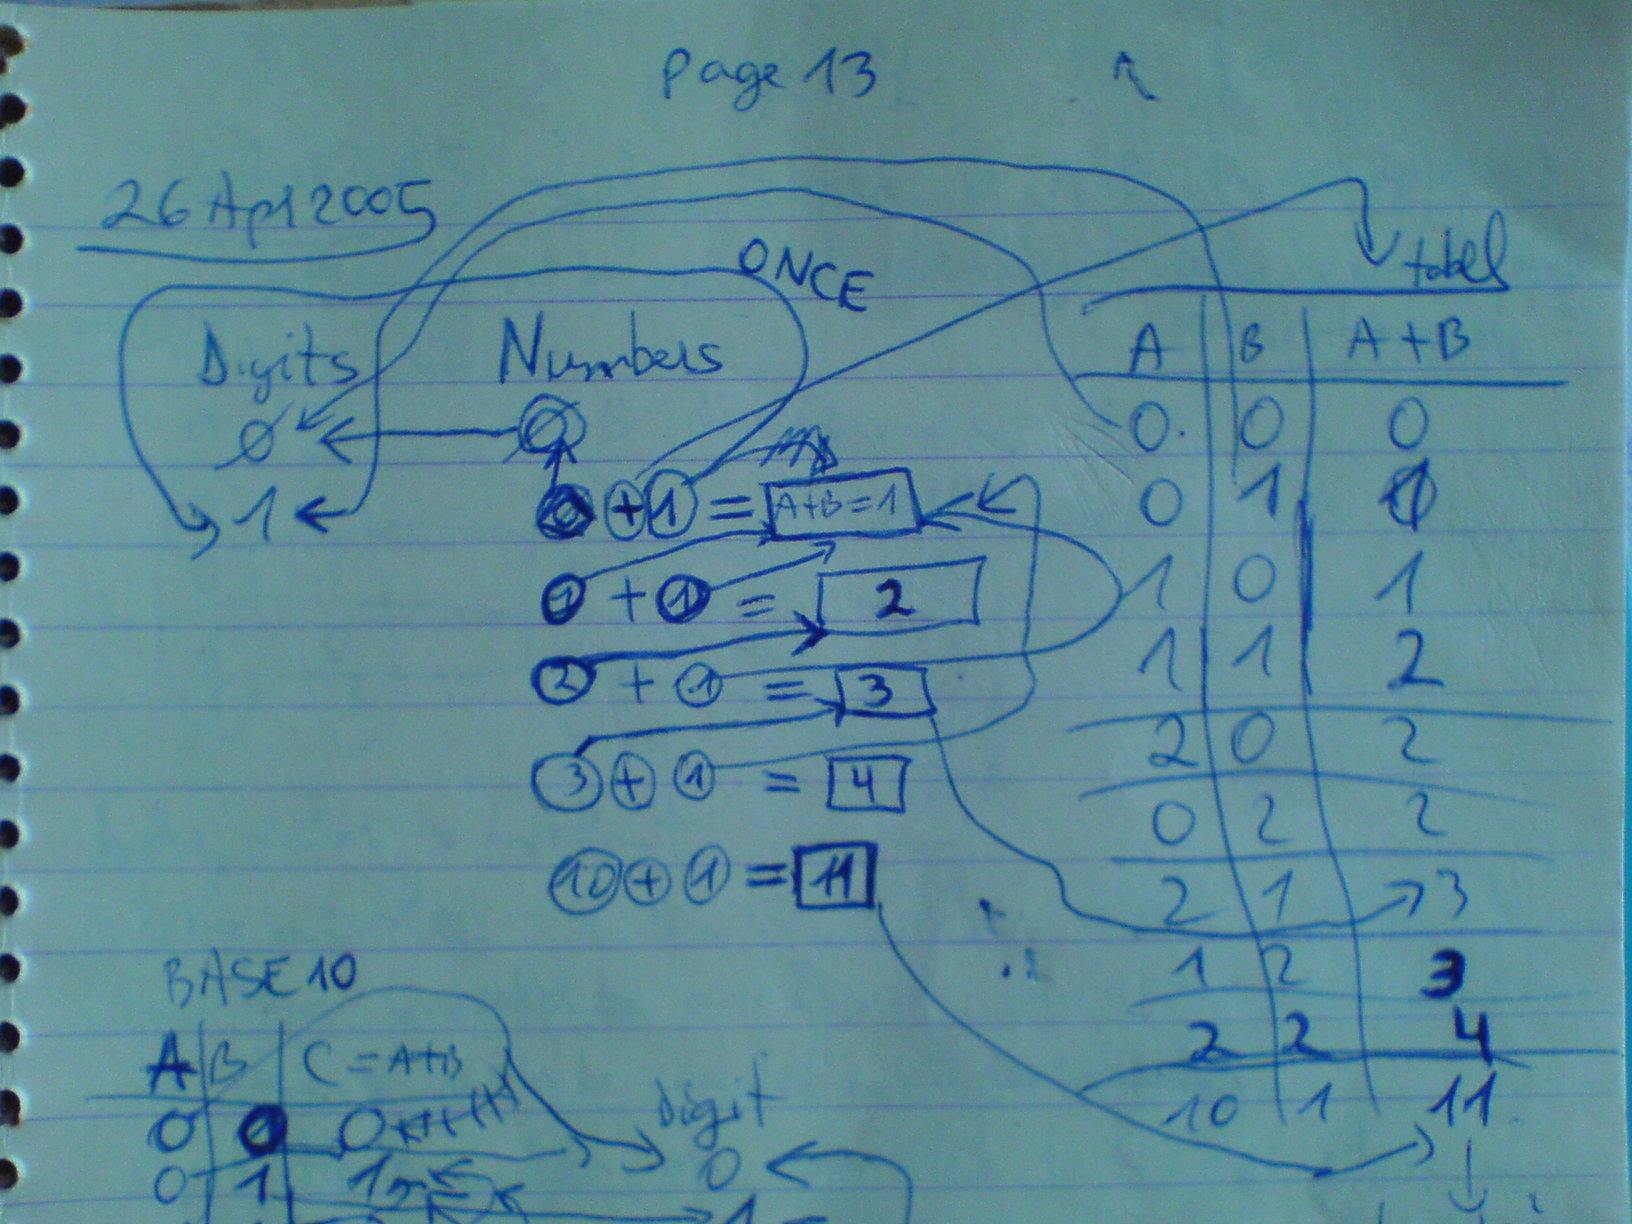 page 13
26 Apl 2005
ONCE
Digits
Numbers
0
0
1
0 + 1 = A+B=1
1 + 1 = 2
2 + 1 = 3
3 + 1 = 4
10 + 1 = 11
tabel
A B A+B
0 0 0
0 1 1
1 0 1
1 1 2
2 0 2
0 2 2
2 1 3
1 2 3
2 2 4
10 1 11
BASE 10
A B C = A+B
0 0 0
0 1 1
Digit
0
1